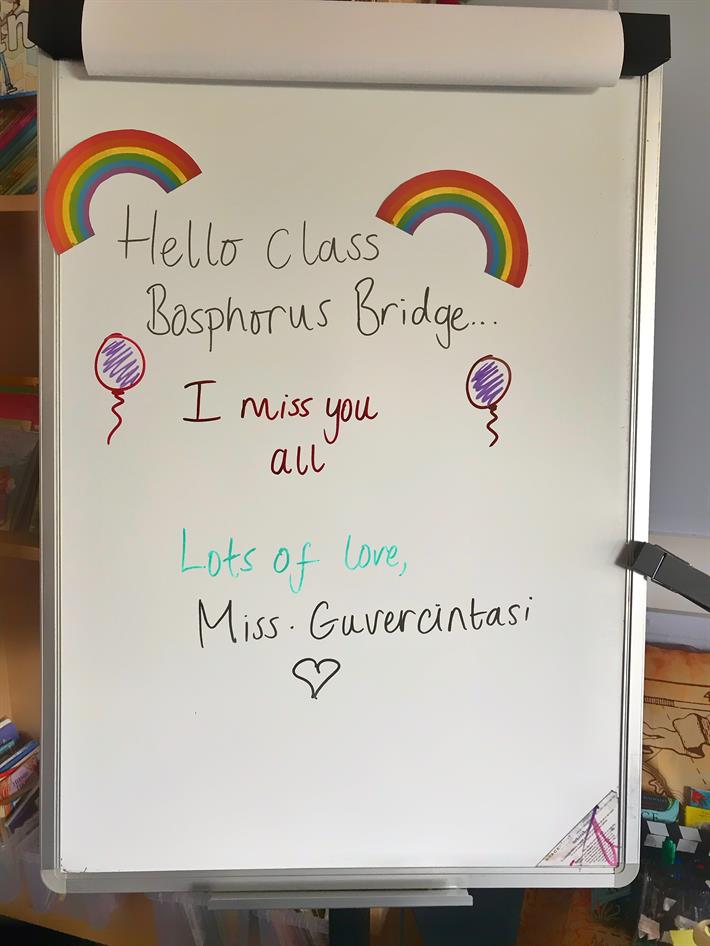 Hello Class
Bosphorus Bridge...
I miss you
all
Lots of love,
Miss. Guvercintasi